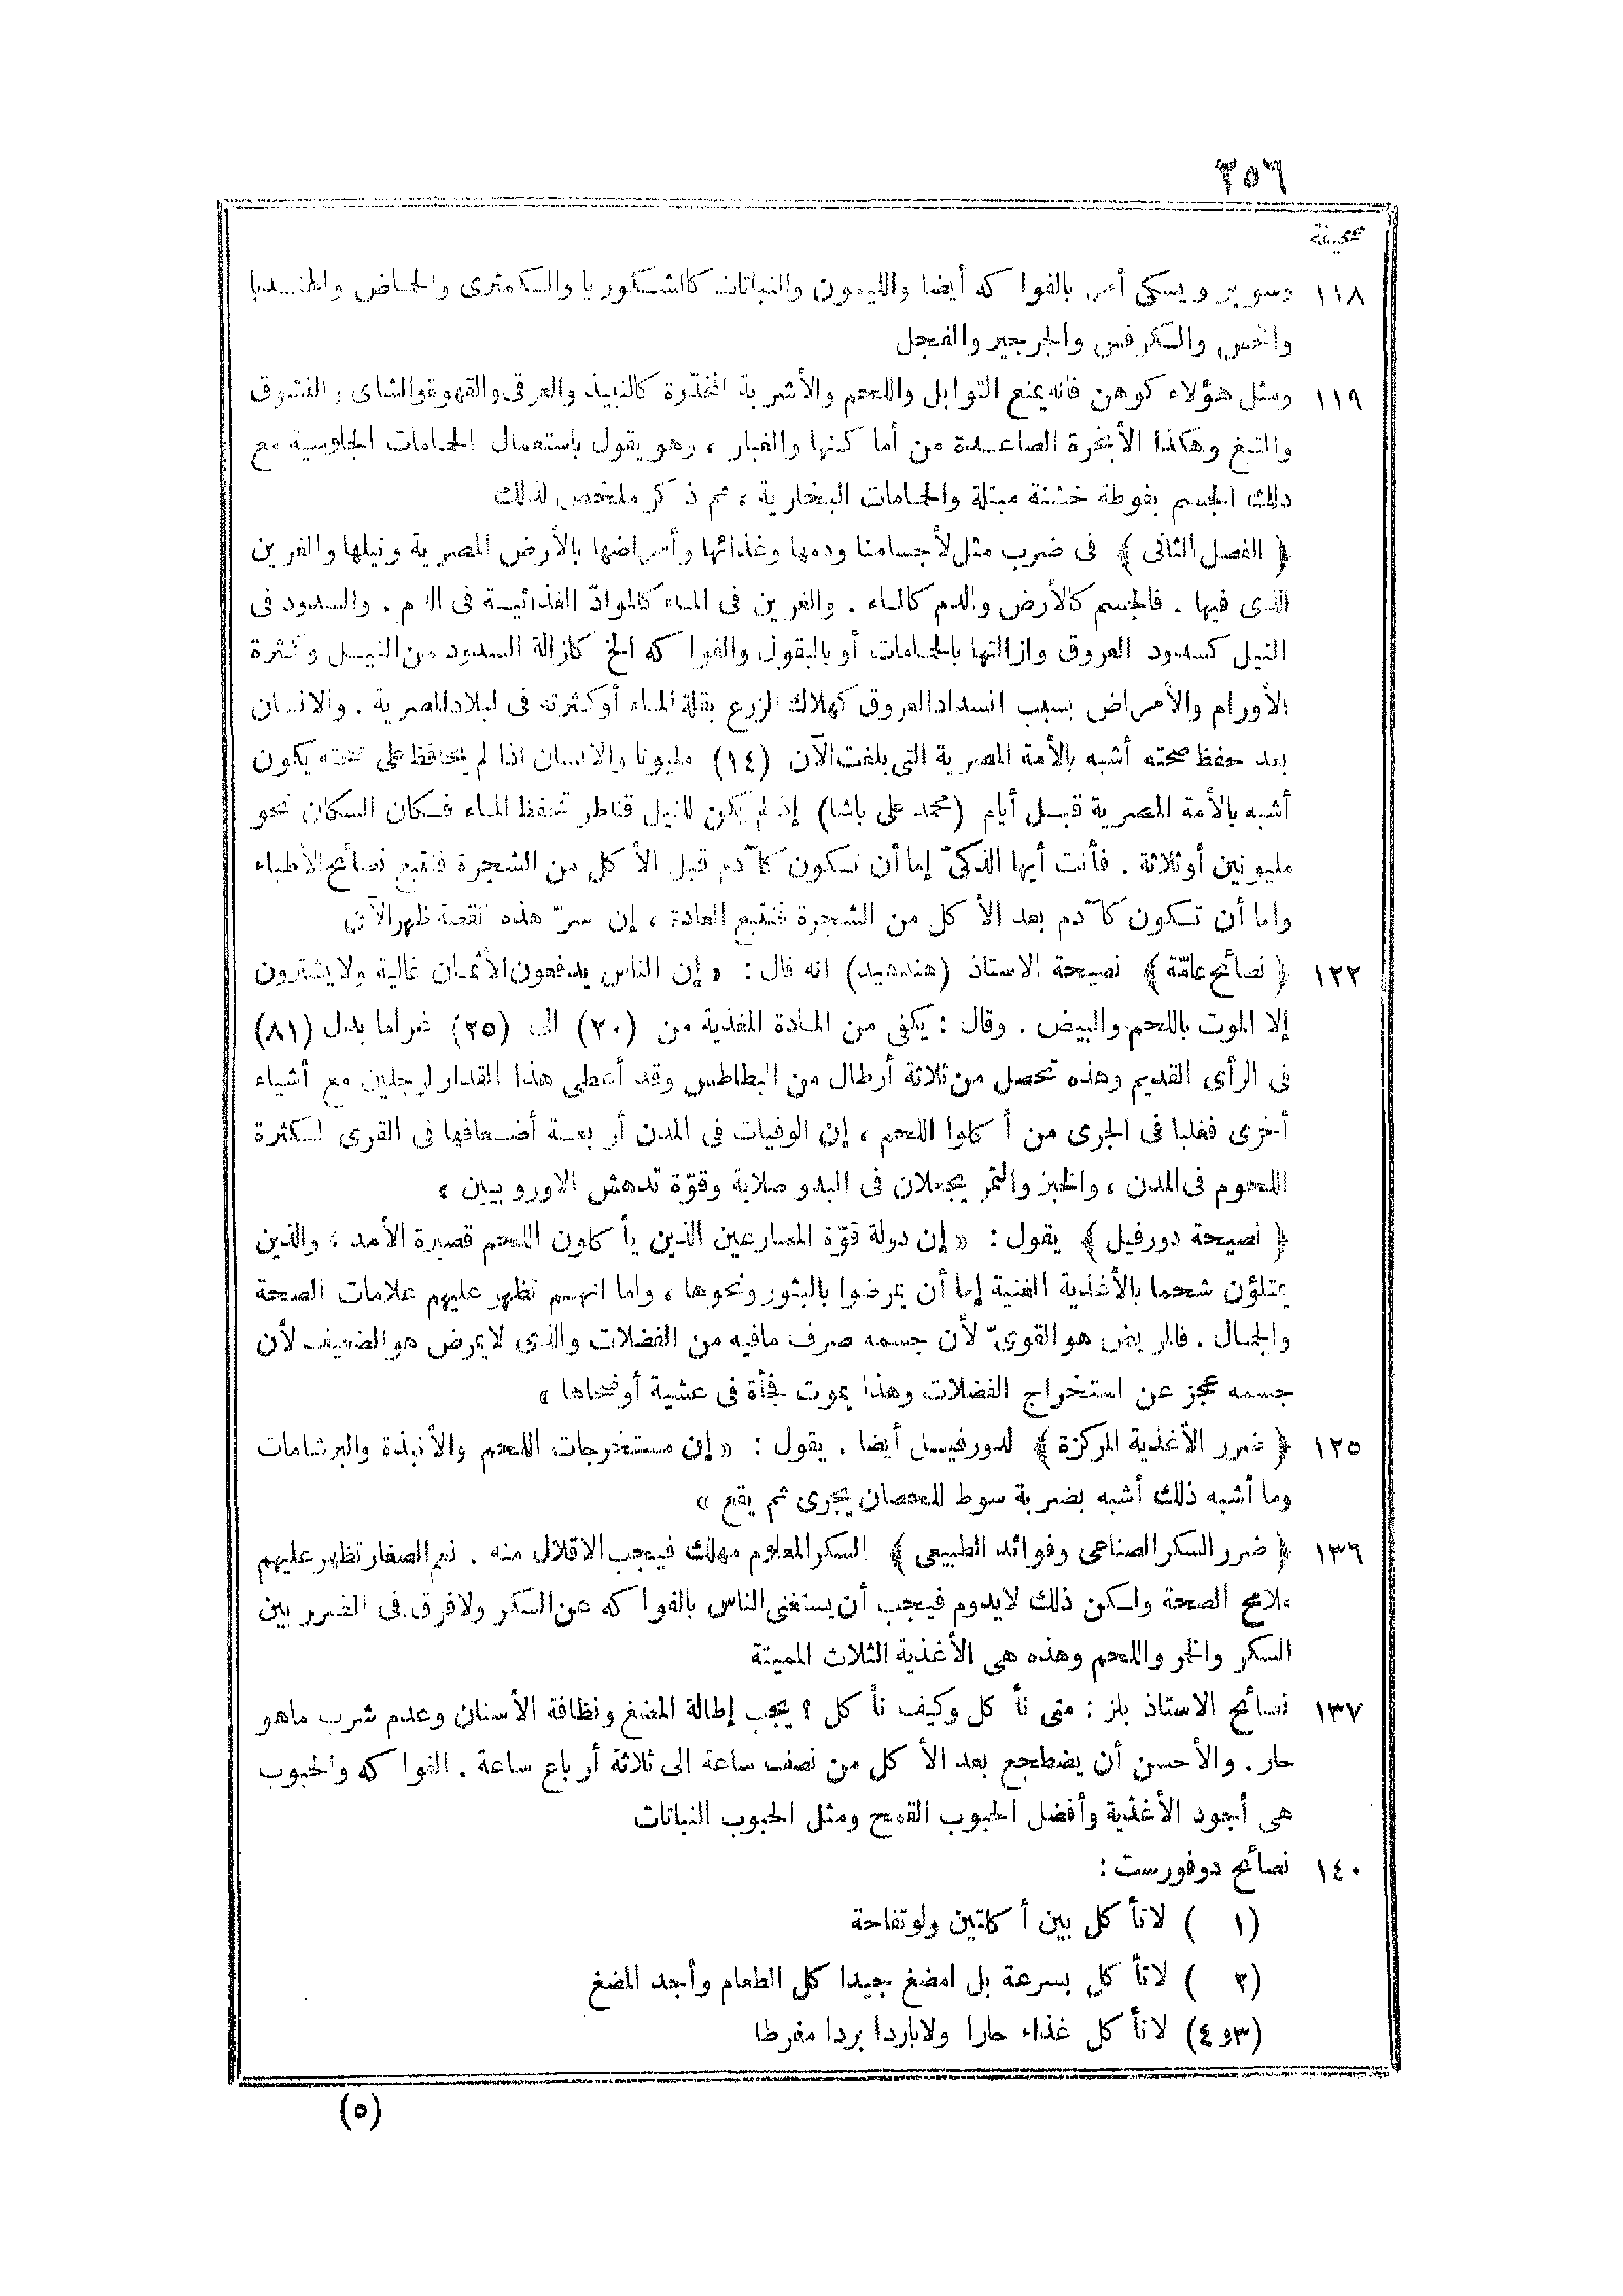 ٢٥٦
صحيفة
١١٨ وسويز ويسكى أمر بالفواكه أيضا والليمون والنباتات كالشكوريا والكمثرى والحماض والهندبا
والخس والكرفس والجرجير والفجل
١١٩ ومثل هؤلاء كوهن فانه يمنع التوابل واللحم والأشربة المخدّرة كالنبيذ والعرق والقهوة والشاى والنشوق
والتبغ وهكذا الأبخرة الصاعدة من أماكنها والغبار ، وهو يقول باستعمال الحمامات الجلوسية مع
دلك الجسم بفوطة خشنة مبتلة والحمامات البخارية ، ثم ذكر ملخص لذلك
﴿ الفصل الثانى ﴾ فى ضرب مثل لأجسامنا ودمها وغذائها وأمراضها بالأرض المصرية ونيلها والغرين
الذى فيها . فالجسم كالأرض والدم كالماء . والغرين فى الماء كالموادّ الغذائية فى الدم . والسدود فى
النيل كسدود العروق وازالتها بالحمامات أو بالبقول والفواكه الخ كازالة السدود من النيل وكثرة
الأورام والأمراض بسبب انسداد العروق كهلاك الزرع بقلة الماء أو كثرته فى البلاد المصرية . والانسان
بعد حفظ صحته أشبه بالأمة المصرية التى بلغت الآن (١٤) مليونا والانسان اذا لم يحافظ على صحته يكون
أشبه بالأمة المصرية قبل أيام (محمد على باشا) إذ لم يكن للنيل قناطر تحفظ الماء فكان السكان نحو
مليونين أو ثلاثة . فأنت أيها الذكىّ إما أن تكون كآدم قبل الأكل من الشجرة فتتبع نصائح الأطباء
واما أن تكون كآدم بعد الأكل من الشجرة فتتبع العادة ، إن سرّ هذه القصة ظهر الآن
١٢٢ ﴿ نصائح عامّة ﴾ نصيحة الاستاذ (هندهيد) انه قال : « إن الناس يدفعون الأثمان غالية ولا يشترون
إلا الموت باللحم والبيض . وقال : يكفى من المادة المغذية من (٢٠) الى (٢٥) غراما بدل (٨١)
فى الرأى القديم وهذه تحصل من ثلاثة أرطال من البطاطس وقد أعطى هذا المقدار لرجلين مع أشياء
أخرى فغلبا فى الجرى من أكلوا اللحم ، إن الوفيات فى المدن أربعة أضعافها فى القرى لكثرة
اللحوم فى المدن ، والخبز والتمر يجعلان فى البدو صلابة وقوّة تدهش الاوروبيين »
﴿ نصيحة دورفيل ﴾ يقول : « إن دولة قوّة المصارعين الذين يأكلون اللحم قصيرة الأمد ، والذين
يمتلؤن شحما بالأغذية الغنية إما أن يمرضوا بالبثور ونحوها ، واما انهم تظهر عليهم علامات الصحة
والجمال . فالمريض هو القوىّ لأن جسمه صرف مافيه من الفضلات والذى لايمرض هو الضعيف لأن
جسمه عجز عن استخراج الفضلات وهذا يموت فجأة فى عشية أو ضحاها »
١٢٥ ﴿ ضرر الأغذية المركزة ﴾ لدورفيل أيضا . يقول : « إن مستخرجات اللحم والأنبذة والبرشامات
وما أشبه ذلك أشبه بضربة سوط للحصان يجرى ثم يقع »
١٣٦ ﴿ ضرر السكر الصناعى وفوائد الطبيعى ﴾ السكر المعلوم مهلك فيجب الاقلال منه . نعم الصغار تظهر عليهم
ملامح الصحة ولكن ذلك لايدوم فيجب أن يستغنى الناس بالفواكه عن السكر ولا فرق فى الضرر بين
السكر والخمر واللحم وهذه هى الأغذية الثلاث المميتة
١٣٧ نصائح الاستاذ بلز : متى نأكل وكيف نأكل ؟ يجب إطالة المضغ ونظافة الأسنان وعدم شرب ماهو
حار . والأحسن أن يضطجع بعد الأكل من نصف ساعة الى ثلاثة أرباع ساعة . الفواكه والحبوب
هى أجود الأغذية وأفضل الحبوب القمح ومثل الحبوب النباتات
١٤٠ نصائح دوفورست :
(١ ) لاتأكل بين أكلتين ولو تفاحة
(٢ ) لاتأكل بسرعة بل امضغ جيدا كل الطعام وأجد المضغ
(٣و٤) لاتأكل غذاء حارا ولا باردا بردا مفرطا
(٥)